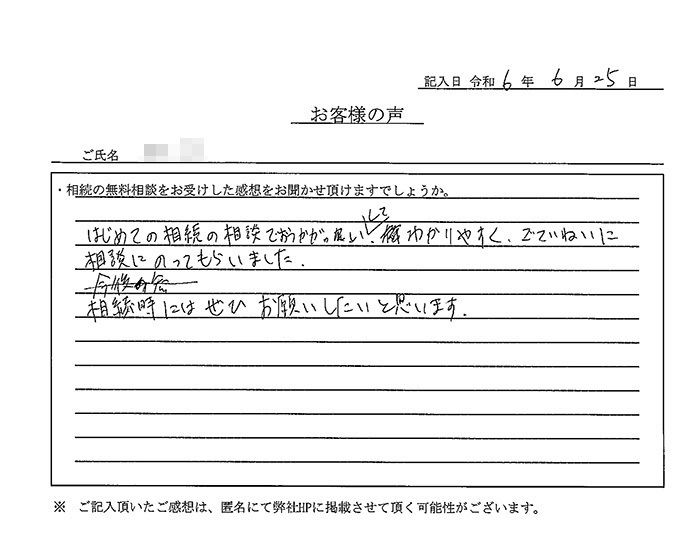 記入日 令和 6 年 6 月 25 日
お客様の声
ご氏名
・相続の無料相談をお受けした感想をお聞かせ頂けますでしょうか。
して
はじめての相続の相談でおうかがい わかりやすく、ごていねいに
相談にのってもらいました.
今後の
相続時にはぜひ お願いしたいと思います.
※ ご記入頂いたご感想は、匿名にて弊社HPに掲載させて頂く可能性がございます。